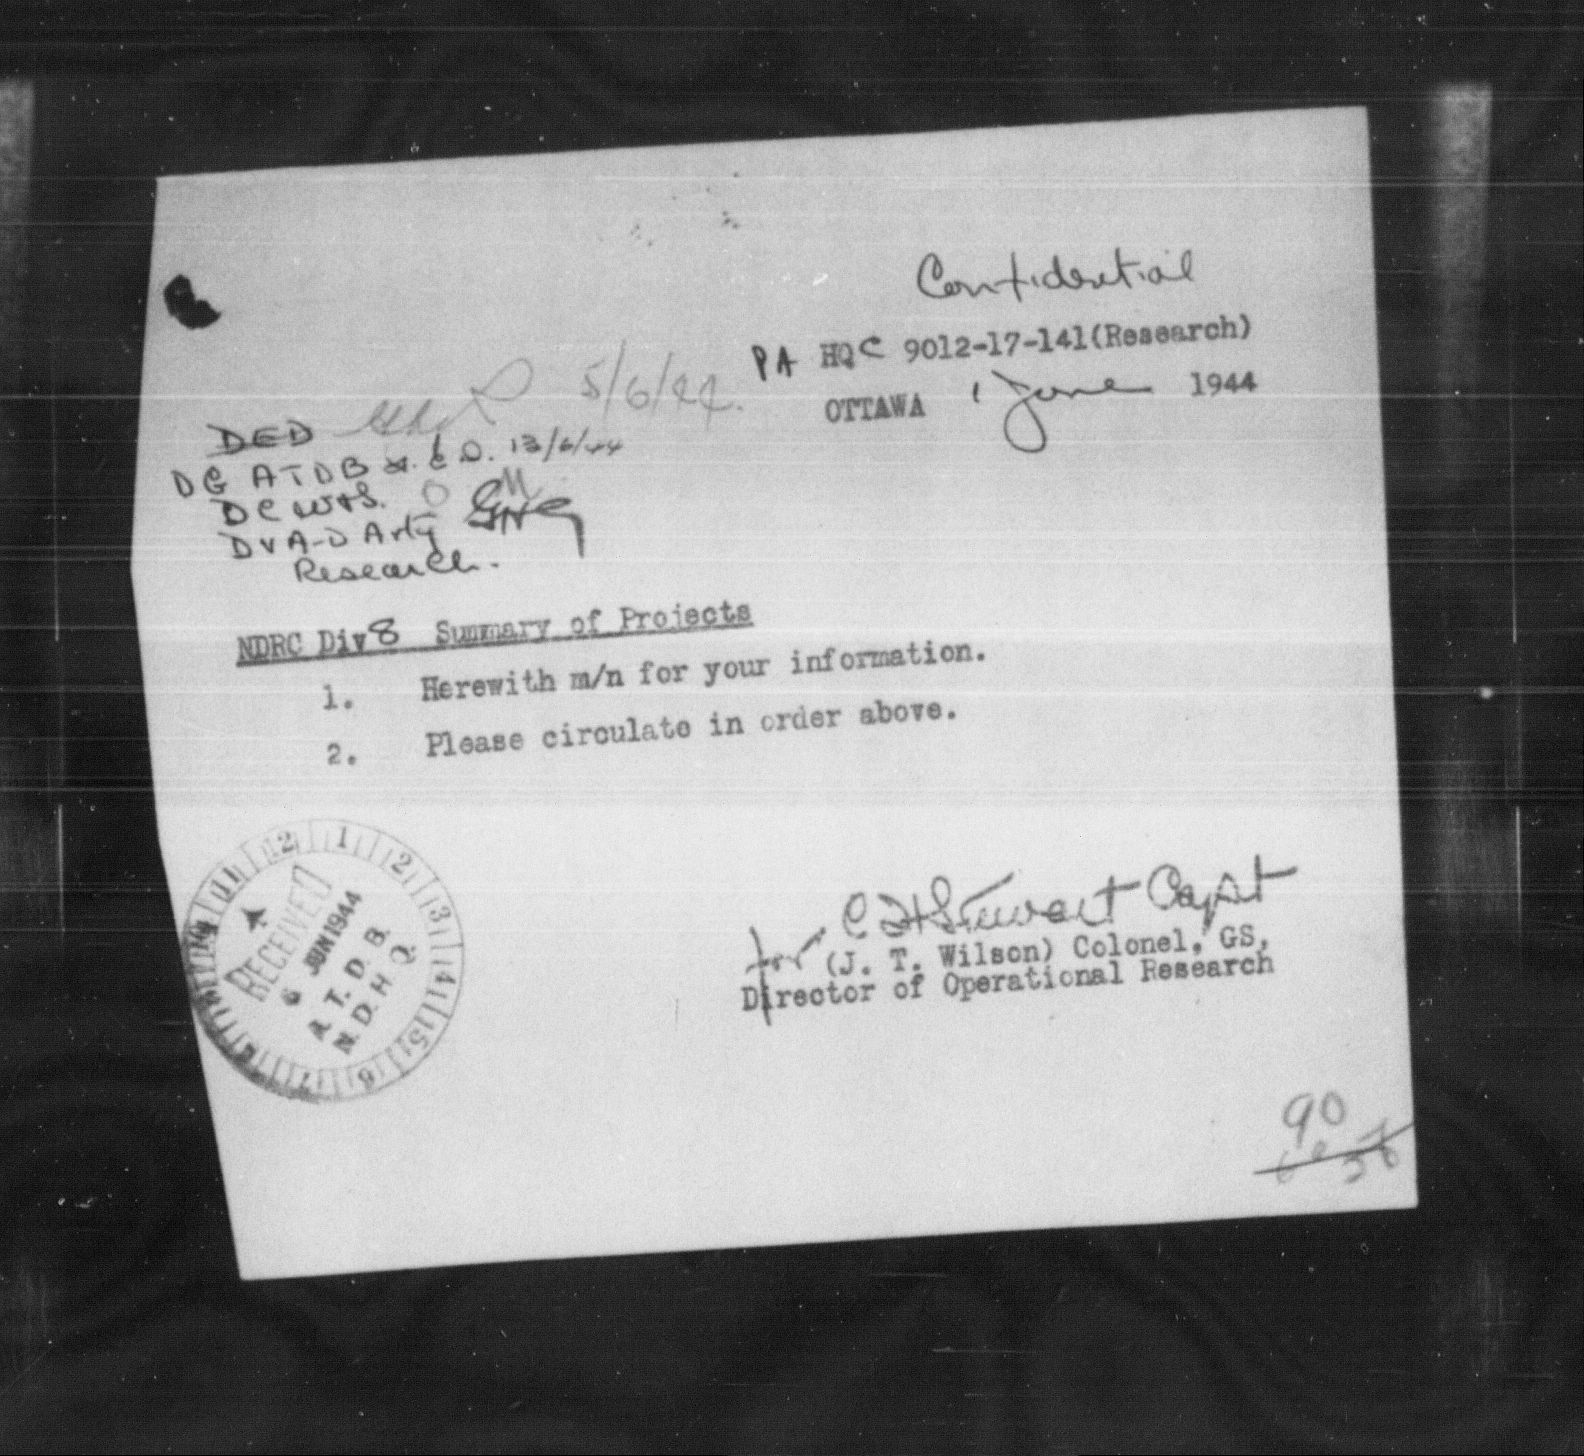 Confidential
PA HQC 9012-17-141(Research)
OTTAWA 1 June 1944
DED 5/6/44.
DG ATDB 13/6/44
DC W+S.
DVA-D Arty
Research.
NDRC Div 8 Summary of Projects
1. Herewith m/n for your information.
2. Please circulate in order above.
12 1 2 3 4 5 6 7 11
RECEIVED
6 JUN 1944
A. T. D. B.
N. D. H. Q.
for C H Stewart Capt
(J. T. Wilson) Colonel, GS,
Director of Operational Research
90